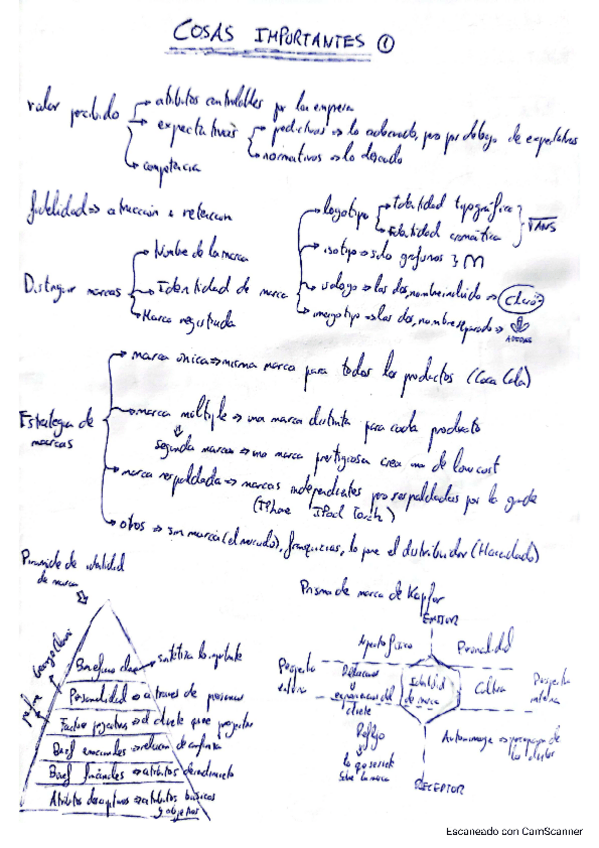 COSAS IMPORTANTES ①
valor percibido
→ atributos controlables por la empresa
→ expectativas
→ predictivas ⇒ lo adecuado, pero por debajo de expectativas
→ normativas ⇒ lo deseado
→ competencia
fidelidad ⇒ atracción + retención
Distinguir marcas
→ Nombre de la marca
→ Identidad de marca
→ Marca registrada
→ logotipo
→ Identidad tipográfica
→ Identidad cromática
VANS
→ isotipo ⇒ solo M
→ ⇒ las dos, nombre incluido ⇒
→ ⇒ las dos, nombre separado ⇒
ADIDAS
Estrategia de marcas
→ marca única ⇒ misma marca para todos los productos (Coca Cola)
→ marca múltiple ⇒ una marca distinta para cada producto
segunda marca ⇒ una marca prestigiosa crea una de low cost
→ marca respaldada ⇒ marcas independientes pero respaldadas por la grande
(IPhone IPod Touch)
→ otros ⇒ sin marca (el mercado), franquicias, lo pone el distribuidor (Hacendado)
Pirámide de identidad
de marca
Beneficio clave → sintetiza lo importante
Personalidad ⇒ a través de personas
⇒ el cliente quiere proyectar
Benef emocionales ⇒ relación de confianza
Benef funcionales ⇒ atributos de rendimiento
Atributos descriptivos ⇒ atributos básicos
y objetivos
Prisma de marca de Kapfer
EMISOR
Aspecto físico
Personalidad
Proyecta
externa
Relaciones
y expectativas del
cliente
Identidad
de marca
Cultura
Proyecta
interna
Reflejo
lo que se dice
sobre la marca
Autoimagen ⇒
RECEPTOR
Escaneado con CamScanner